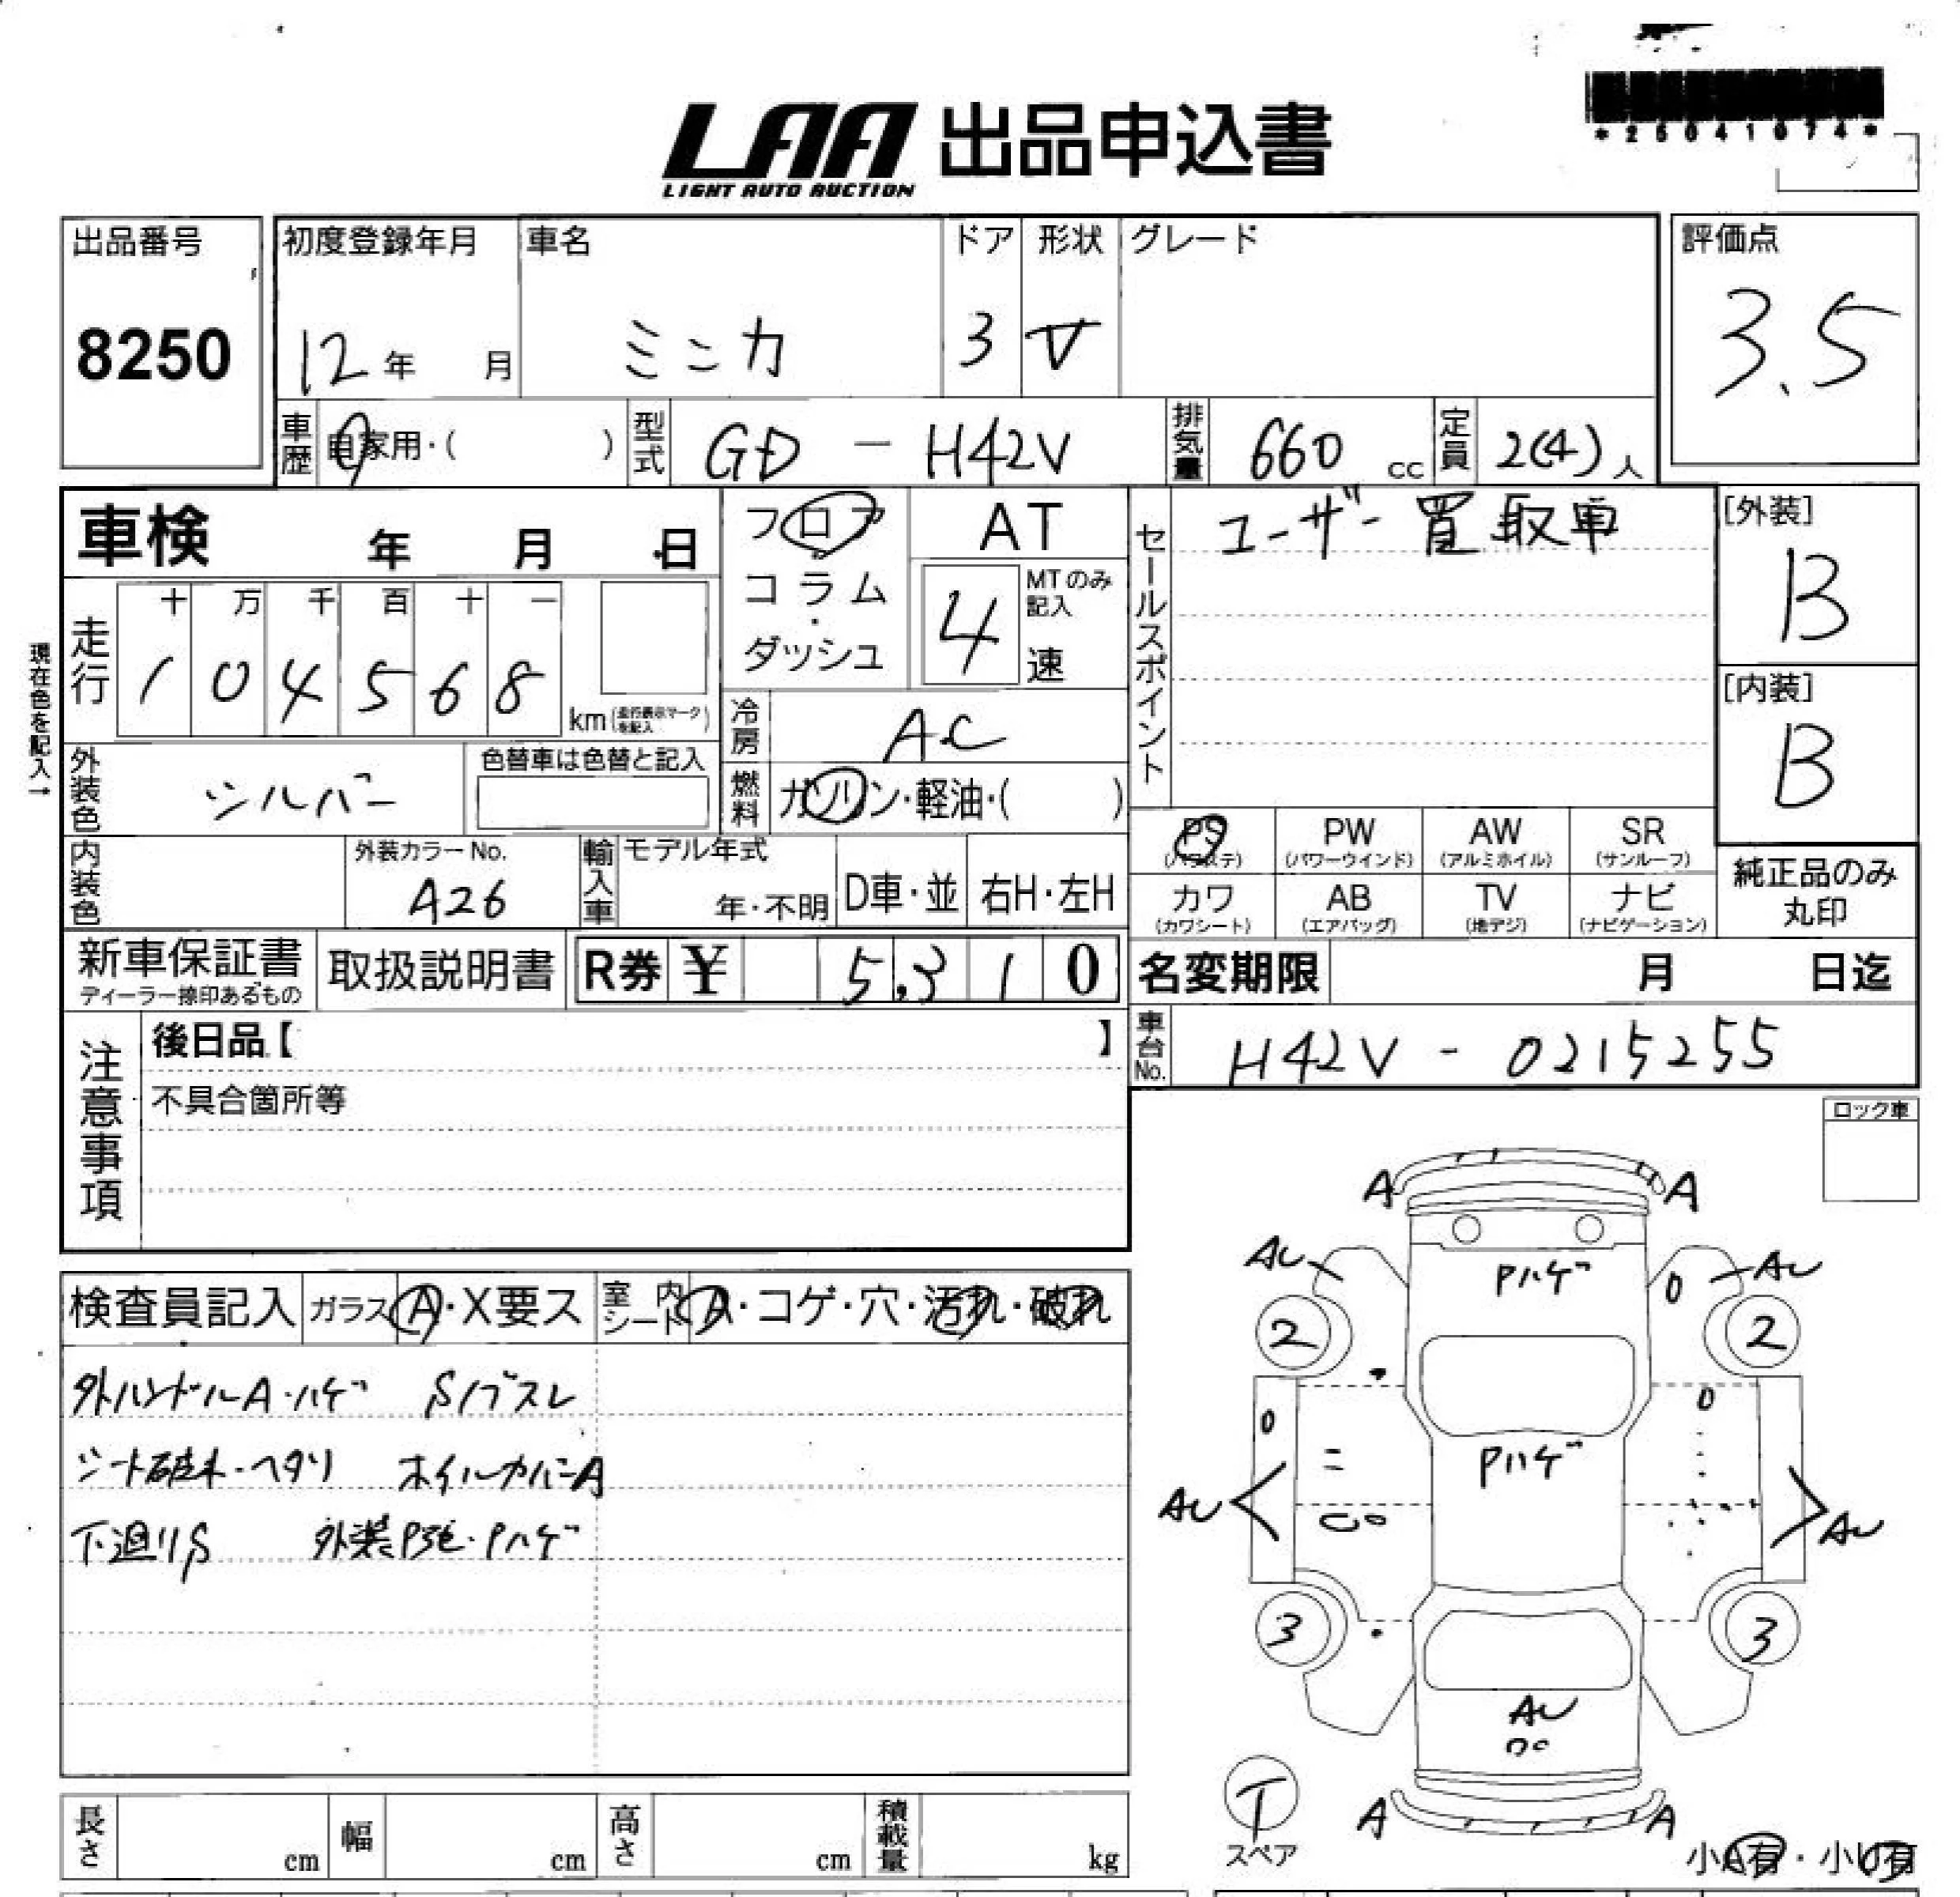 *25041074*
LAA 出品申込書
LIGHT AUTO AUCTION
出品番号
8250
初度登録年月
12年 月
車名
ミニカ
ドア
3
形状
V
グレード
評価点
3.5
車歴
自家用・( )
型式
GD - H42V
排気量
660 cc
定員
2(4)人
車検 年 月 日
走行
十 万 千 百 十 一
1 0 4 5 6 8
km(走行表示マークを記入)
現在色を記入→
フロア
コラム
ダッシュ
AT
MTのみ記入
4 速
冷房
AC
燃料
ガソリン・軽油・( )
外装色
シルバー
色替車は色替と記入
内装色
外装カラーNo.
A26
輸入車
モデル年式
年・不明
D車・並
右H・左H
セールスポイント
ユーザー買取車
[外装]
B
[内装]
B
PS PW AW SR
(パワステ) (パワーウインド) (アルミホイル) (サンルーフ)
カワ AB TV ナビ
(カワシート) (エアバッグ) (地デジ) (ナビゲーション)
純正品のみ
丸印
新車保証書
ディーラー捺印あるもの
取扱説明書
R券 ¥ 5,310
名変期限 月 日迄
車台No.
H42V - 0215255
注意事項
後日品【 】
不具合箇所等
ロック車
検査員記入
ガラス A・X要ス
室内シート A・コゲ・穴・汚れ・破れ
外ハンドルA・ハゲ
シート破れ・ヘタリ ホイルカバーA
下廻りS 外装P色・Pハゲ
A A
AU AU
Pハゲ
0
2 2
0 0
Pハゲ
AU AU
3 3
AU
A A
T
スペア
小A有・小U有
長さ cm
幅 cm
高さ cm
積載量 kg